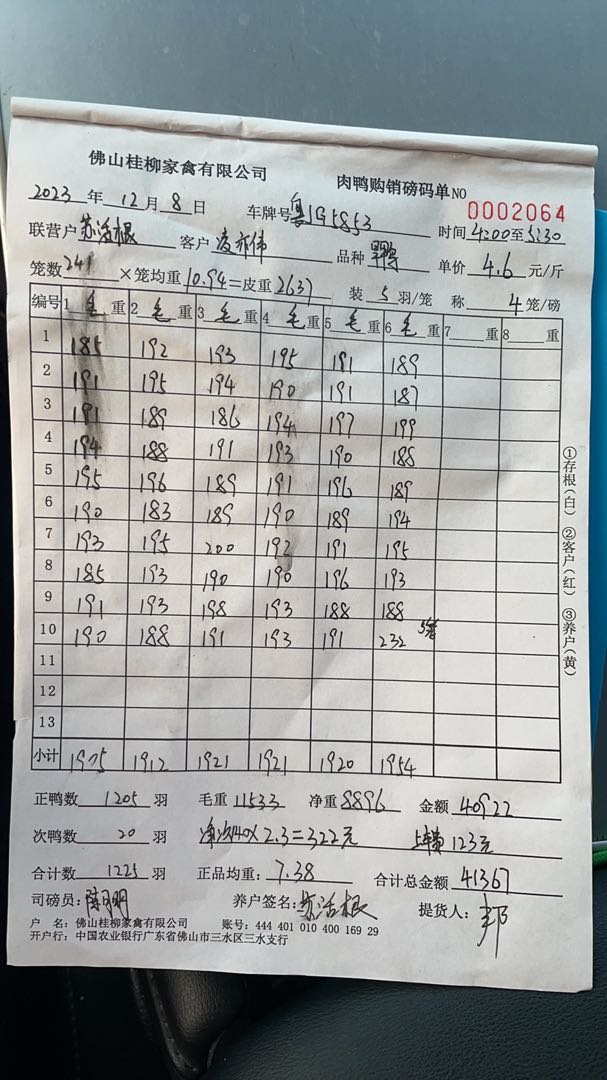 佛山桂柳家禽有限公司 肉鸭购销磅码单 NO 0002064
2023 年 12 月 8 日 车牌号 粤J95853 时间 4:00 至 5:30
联营户 苏活根 客户 凌亦伟 品种 单价 4.6 元/斤
笼数 241 ×笼均重 10.94 =皮重 2637 装 5 羽/笼 称 4 笼/磅
编号 1 毛 重 2 毛 重 3 毛 重 4 毛 重 5 毛 重 6 毛 重 7 重 8 重
1 185 192 193 195 191 189
2 191 195 194 190 191 187
3 191 189 186 194 197 199
4 194 188 191 193 190 188
5 195 196 189 191 196 189
6 190 183 189 190 189 194
7 193 195 200 192 191 195
8 185 193 190 190 196 193
9 191 193 198 193 188 188
10 190 188 191 193 191 232 5笼
11
12
13
小计 1905 1912 1921 1921 1920 1954
正鸭数 1205 羽 毛重 11533 净重 8896 金额 40922
次鸭数 20 羽 净次140×2.3=322元 上车费 123元
合计数 1225 羽 正品均重: 7.38 合计总金额 41367
司磅员: 陈明 养户签名: 苏活根 提货人: 邦
户 名: 佛山桂柳家禽有限公司 账号: 444 401 010 400 169 29
开户行: 中国农业银行广东省佛山市三水区三水支行
①存根(白) ②客户(红) ③养户(黄)